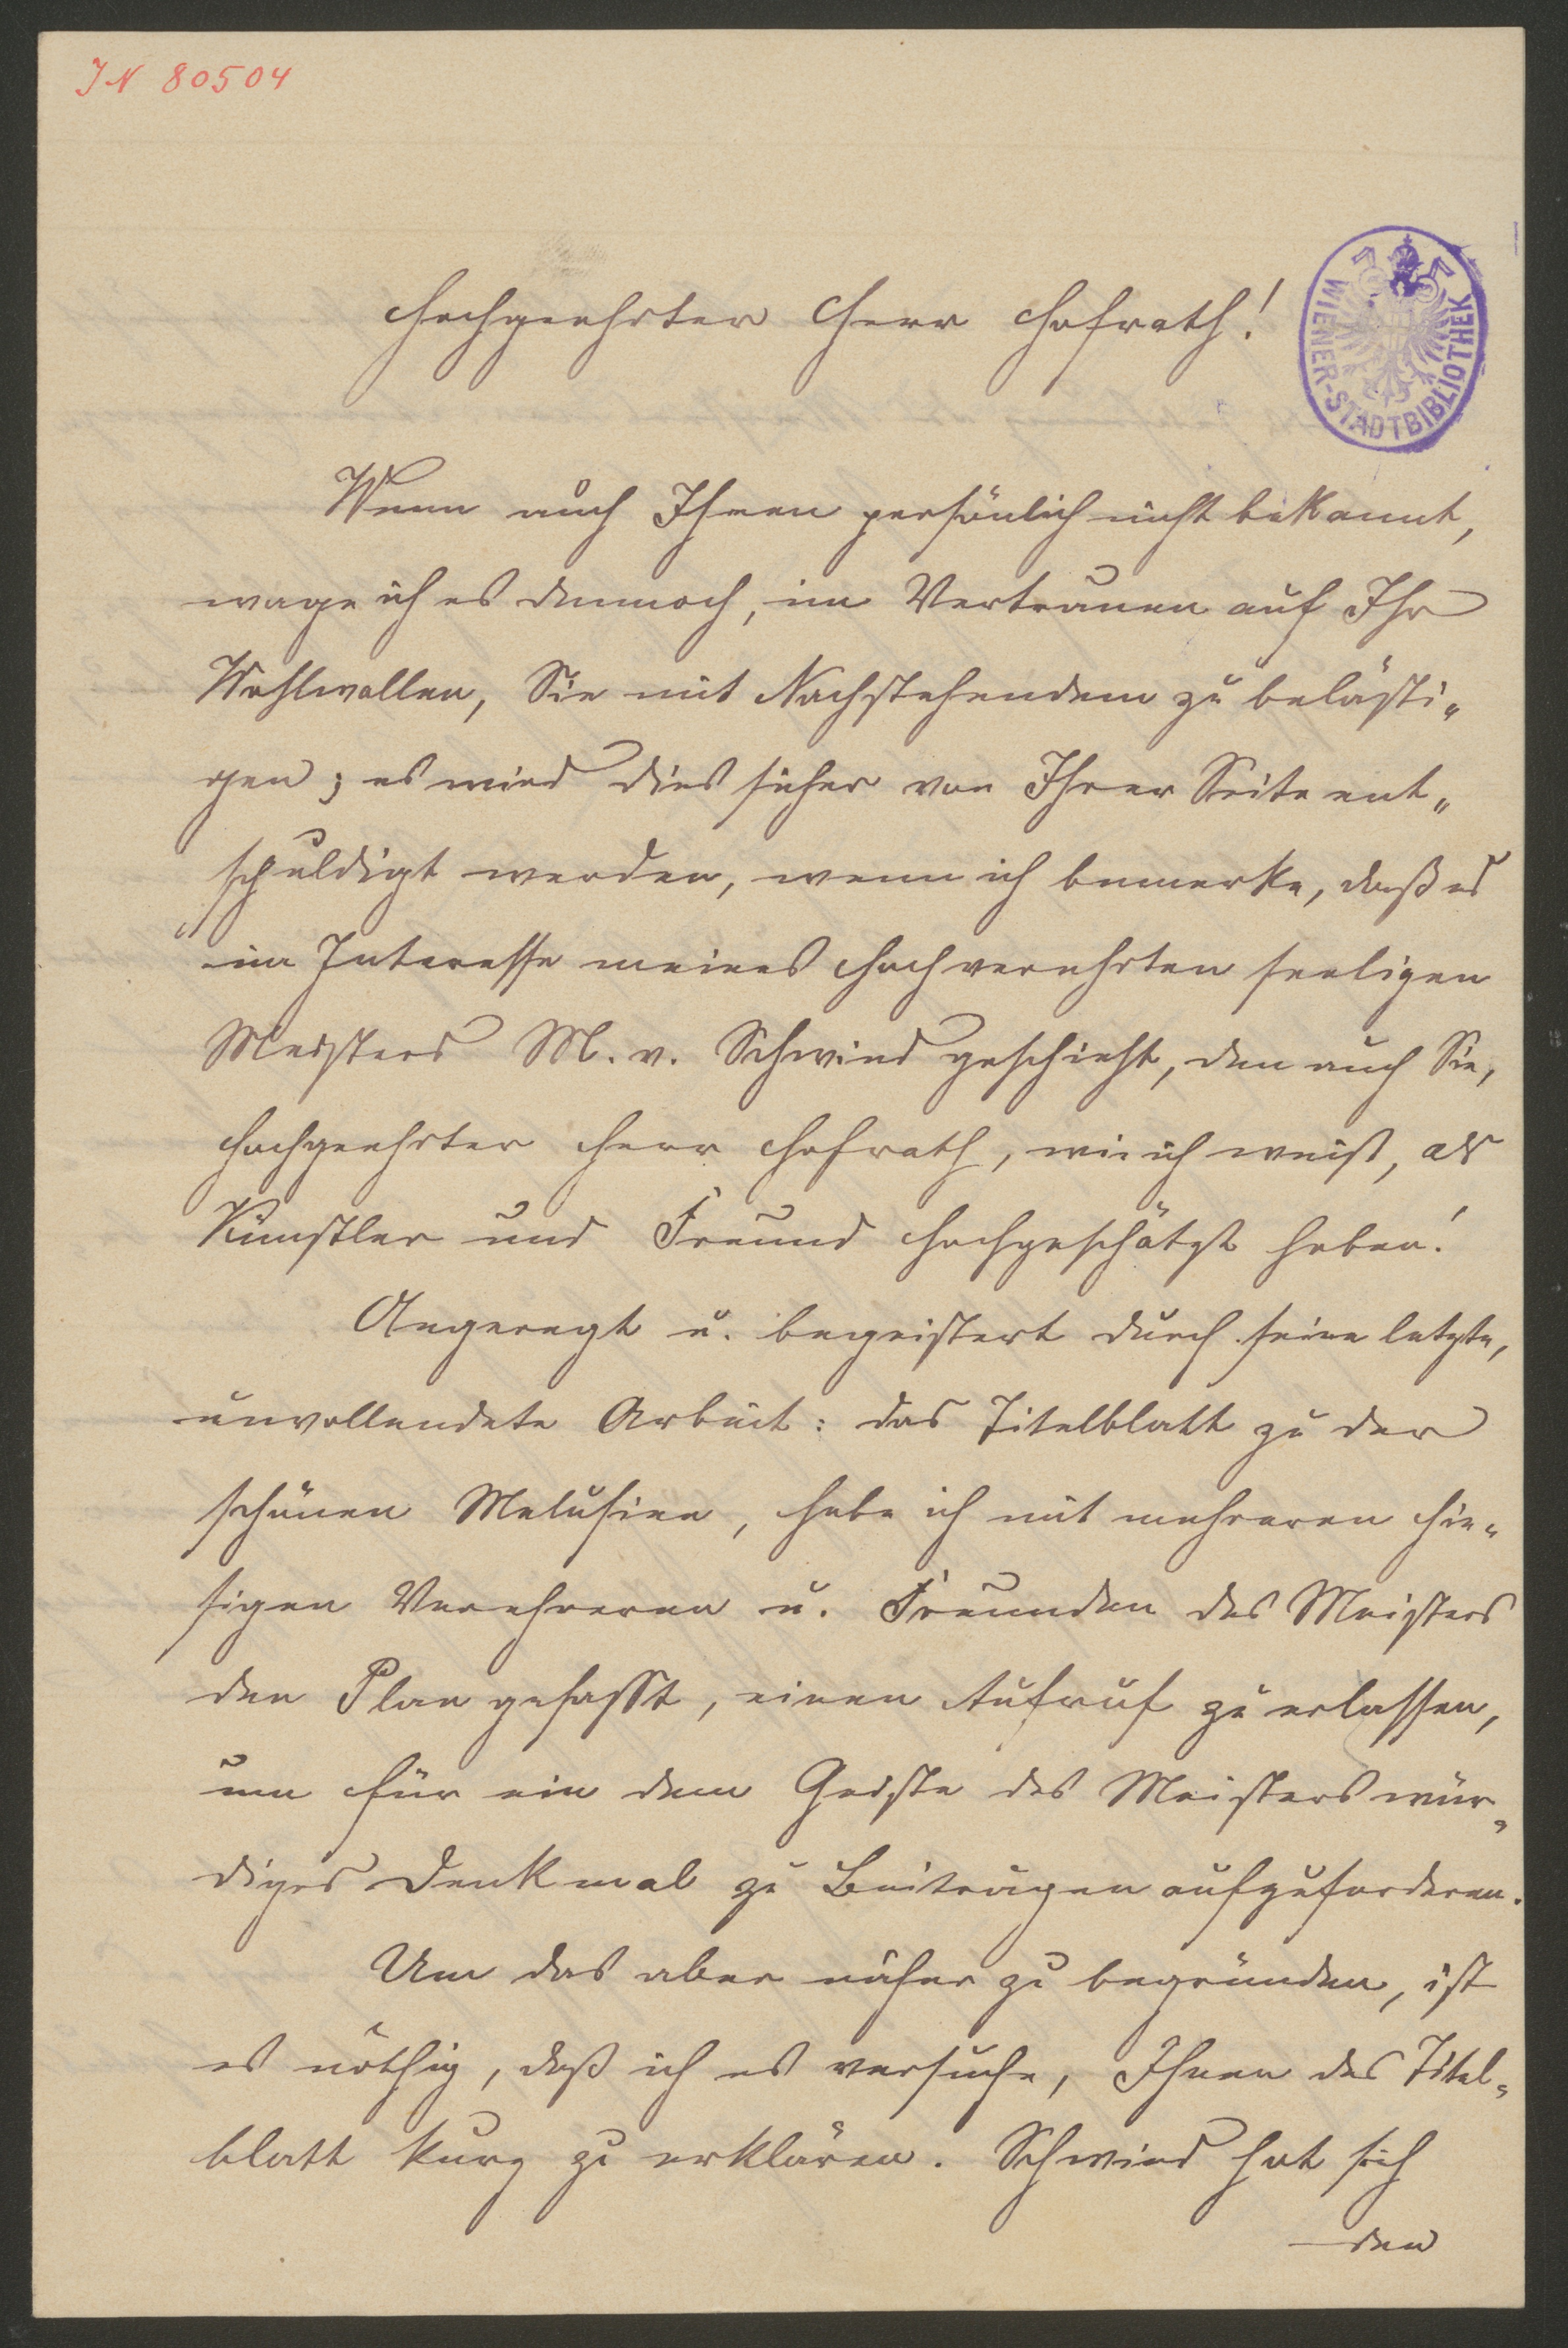 IN 80504
Hochgeehrter Herr Hofrath!
WIENER-STADTBIBLIOTHEK
Wenn auch Ihnen persönlich nicht bekannt,
wage ich es dennoch, im Vertrauen auf Ihr
Wohlwollen, Sie mit Nachstehendem zu belästi„
gen; es wird dies sicher von Ihrer Seite ent„
schuldigt werden, wenn ich bemerke, daß es
im Interesse meines hochverehrten seeligen
Meisters M. v. Schwind geschieht, den auch Sie,
hochgeehrter Herr Hofrath, wie ich weiß, als
Künstler und Freund hochgeschätzt haben!
Angeregt u. begeistert durch seine letzte,
unvollendete Arbeit: das Titelblatt zu der
schönen Melusine, habe ich mit mehreren hie„
sigen Verehreren u. Freunden des Meisters
den Plan gefasst, einen Aufruf zu erlassen,
um für ein dem Geiste des Meisters wür„
diges Denkmal zu Beiträgen aufzuforderen.
Um das aber näher zu begründen, ist
es nöthig, daß ich es versuche, Ihnen das Titel„
blatt kurz zu erklären. Schwind hat sich
den